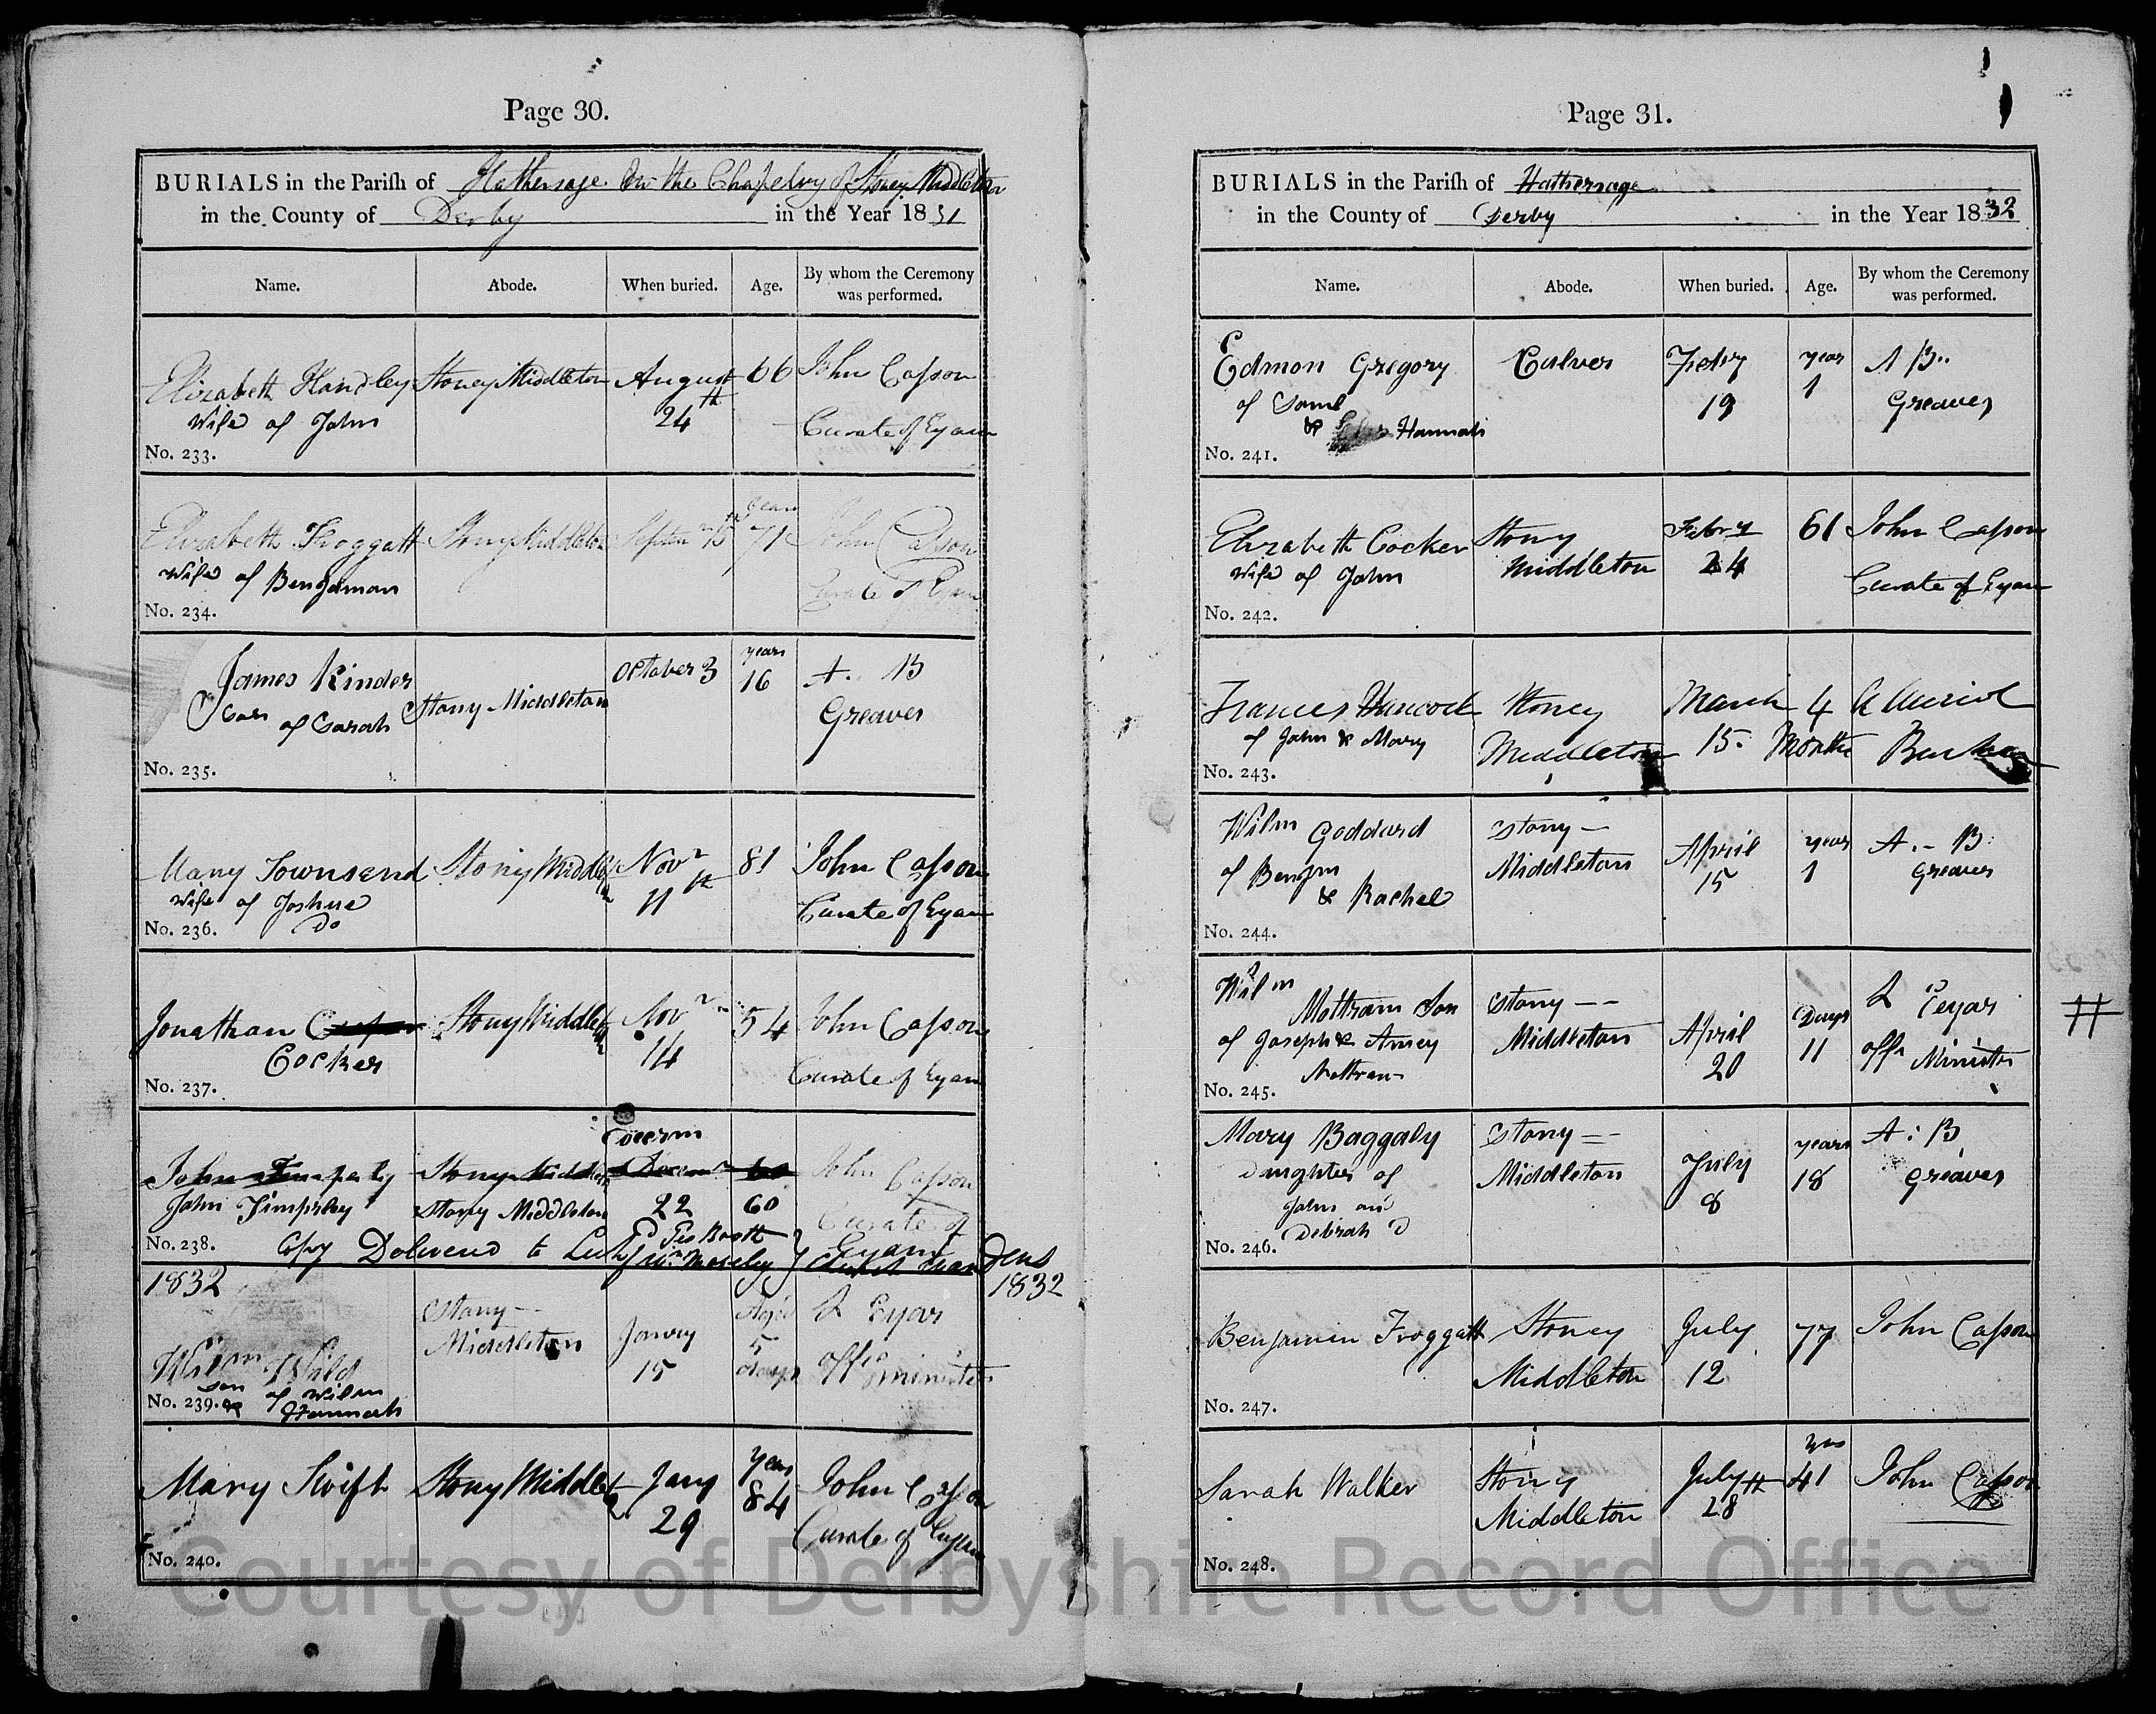 Page 30.
BURIALS in the Parish of Hathersage in the Chapelry of Stoney Middleton
in the County of Derby in the Year 1831
Name. Abode. When buried. Age. By whom the Ceremony was performed.
Elizabeth Handley Stoney Middleton August 66 John Casson
wife of John 24th Curate of Eyam
No. 233.
years
Elizabeth Froggatt Stony Middleton 15th 71 John Casson
wife of Bengaman Curate of Eyam
No. 234.
years
James Kinder Stony Middleton October 3 16 A. B
of Sarah Greaves
No. 235.
Mary Townsend Stony Middleton Novr 81 John Casson
wife of Joshua 11th Curate of Eyam
Do
No. 236.
Jonathan Stony Middleton Novr 54 John Casson
Cocker 14 Curate of Eyam
No. 237.
John Timperly Stony Middleton 60 John Casson
John Timperley Stony Middleton 22 60 Curate of
Eyam
No. 238. Copy Delivered to Geo Booth
Moseley
1832 1832
Stony - Aged
Middleton Janry 5 Eyar
Wilm Wild 15 days offg minister
son of Wilm
No. 239. & Hannah
years
Mary Swift Stony Middleton Jany 84 John Casson
29 Curate of Eyam
No. 240.
Page 31.
BURIALS in the Parish of Hathersage
in the County of Derby in the Year 1832
Name. Abode. When buried. Age. By whom the Ceremony was performed.
Edmon Gregory Calver Febry year A B..
of Saml 19 1 Greaves
& Hannah
No. 241.
Elizabeth Cocker Stony Febry 61 John Casson
wife of John Middleton 24 Curate of Eyam
No. 242.
Frances Hancock Stoney March 4
of John & Mary Middleton 15. Months
No. 243.
Wilm Goddard Stony - April year A. - B:
of Bengm Middleton 15 1 Greaves
& Rachel
No. 244.
Wilm
Mottram Son Stony - - Days
of Joseph & Amey Middleton April 11 offg Minister
Mottram 20
No. 245.
Mary Baggaly Stony = - years A: B
Daughter of Middleton July 18 Greaves
John and 8
Debrah
No. 246.
Benjamin Froggatt Stoney July 77 John Casson
Middleton 12
No. 247.
yrs
Sarah Walker Stoney July 41 John Casson
Middleton 28th
No. 248.
Courtesy of Derbyshire Record Office